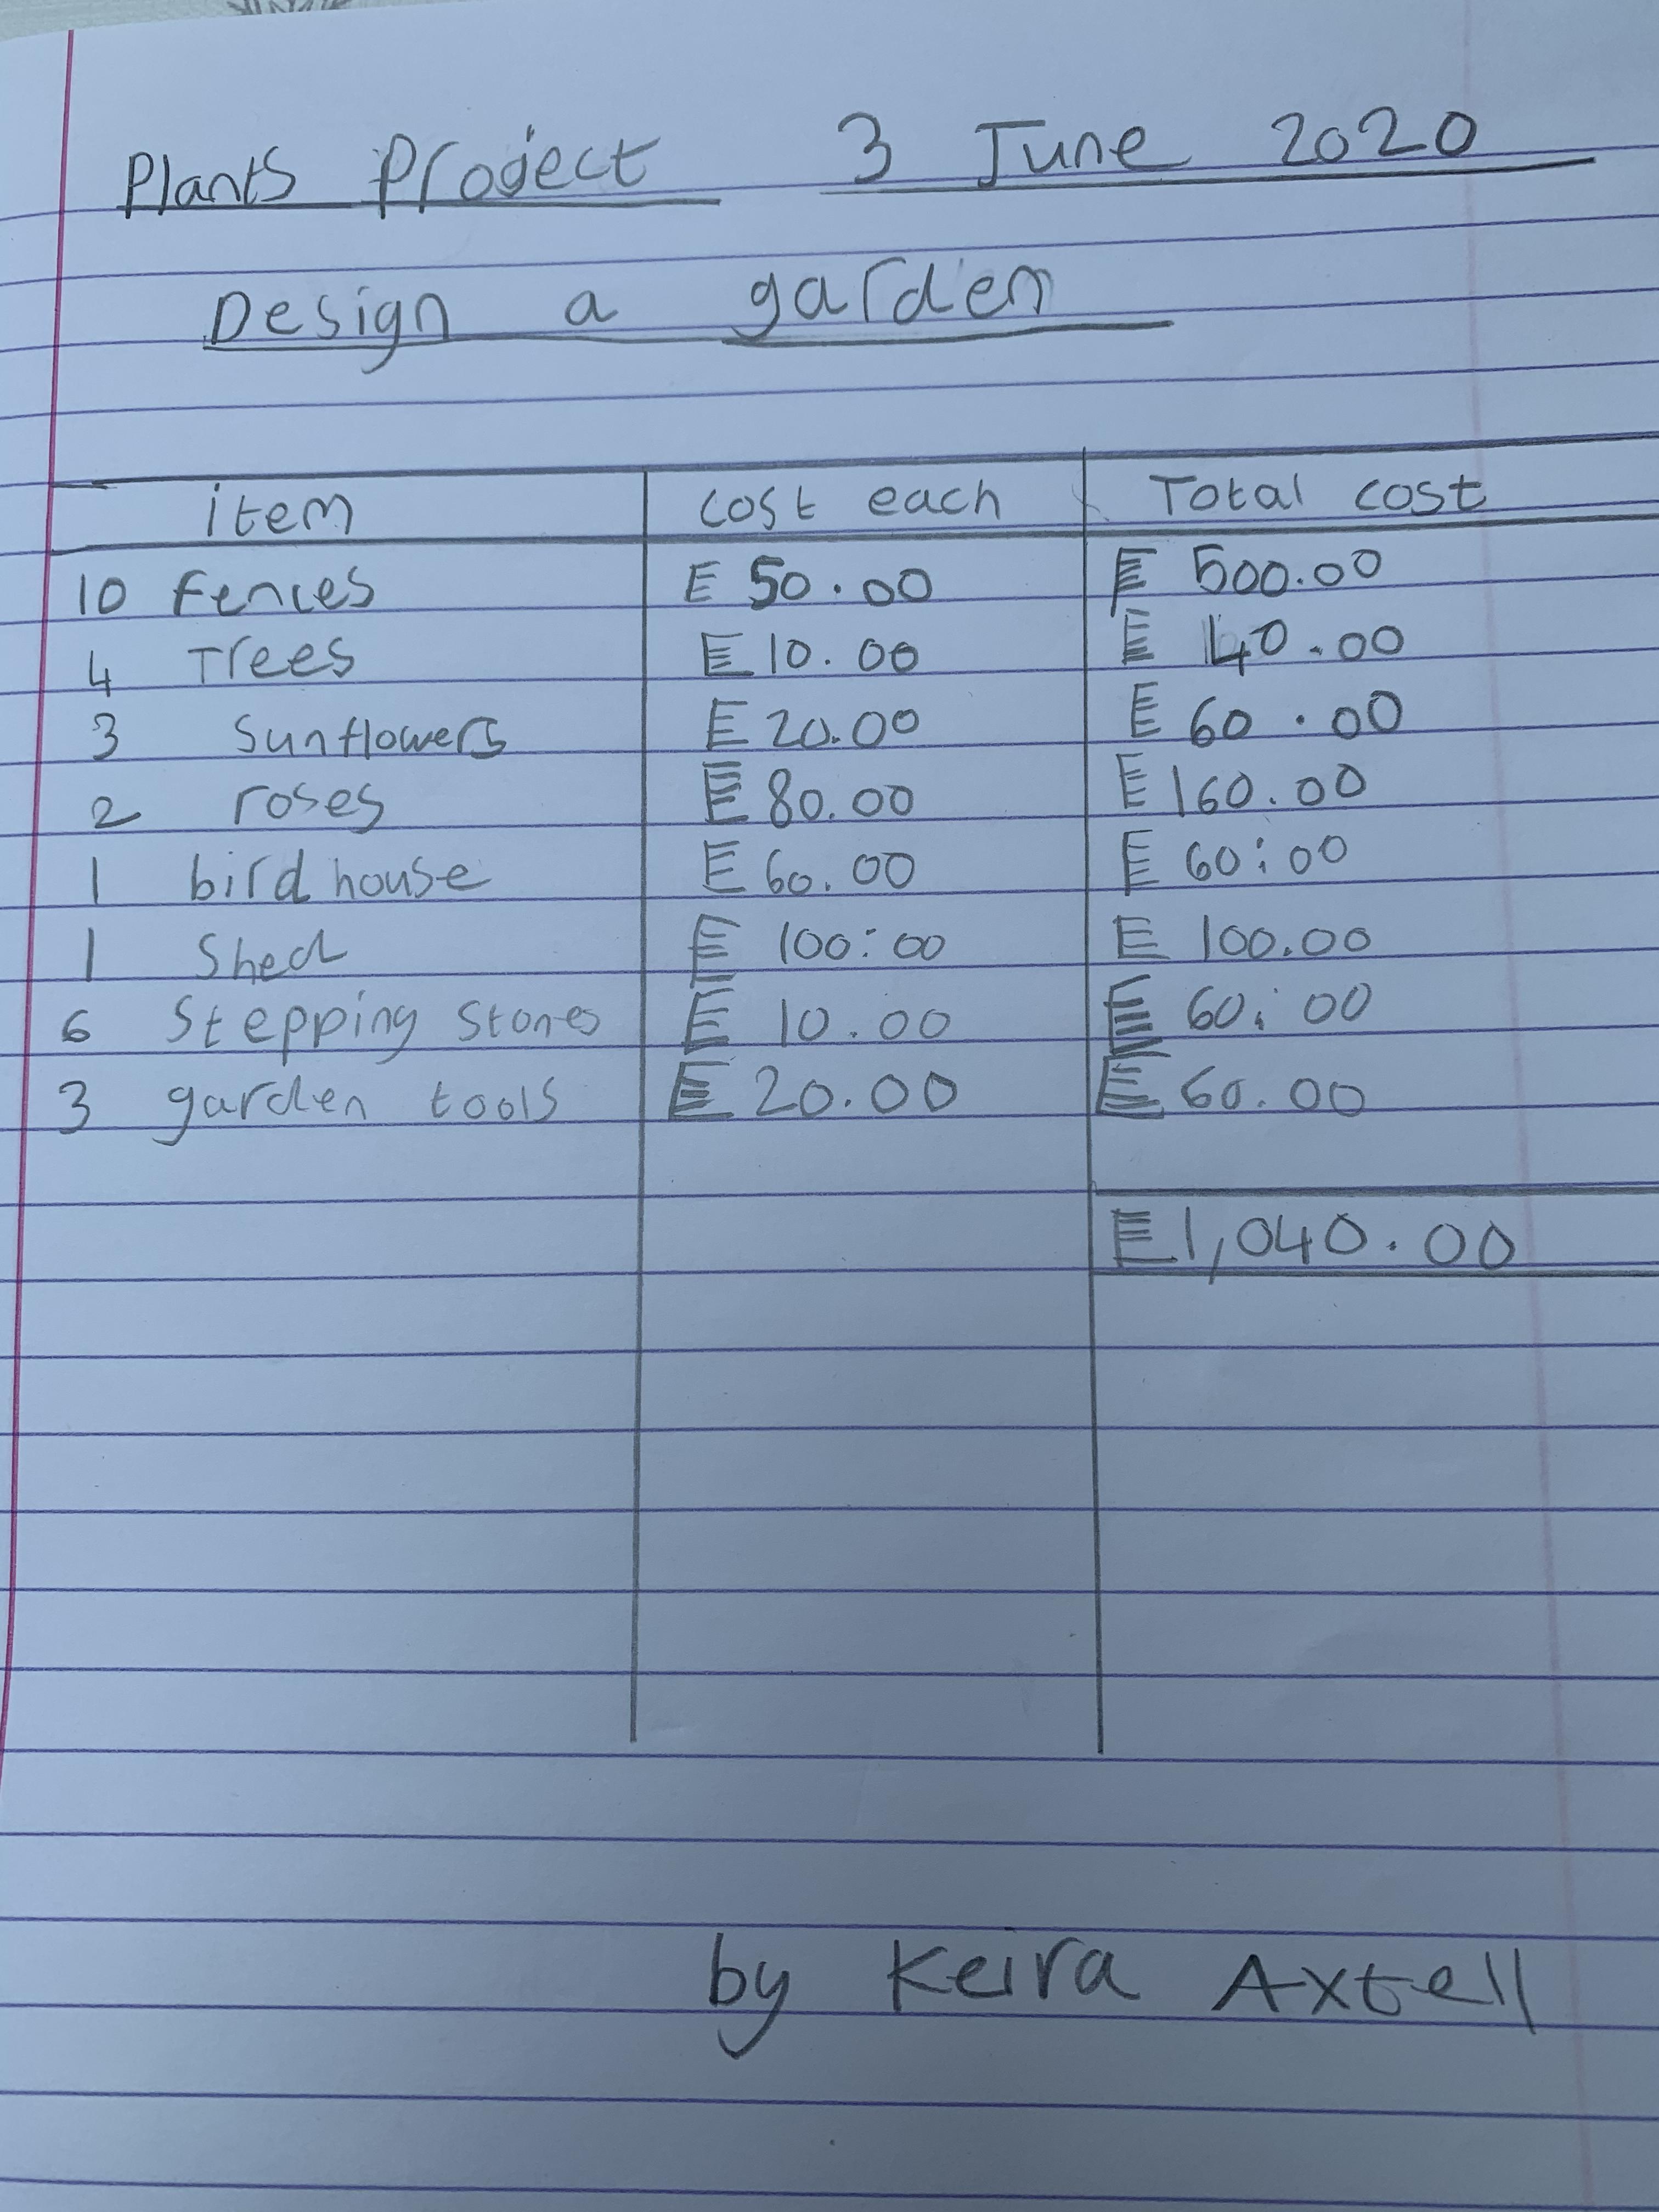 Plants Project 3 June 2020
Design a garden
item cost each Total cost
10 fences £ 50.00 £ 500.00
4 Trees £ 10.00 £ 40.00
3 Sunflowers £ 20.00 £ 60.00
2 roses £ 80.00 £ 160.00
1 bird house £ 60.00 £ 60:00
1 Shed £ 100:00 £ 100.00
6 Stepping Stones £ 10.00 £ 60:00
3 garden tools £ 20.00 £ 60.00
£1,040.00
by Keira Axtell